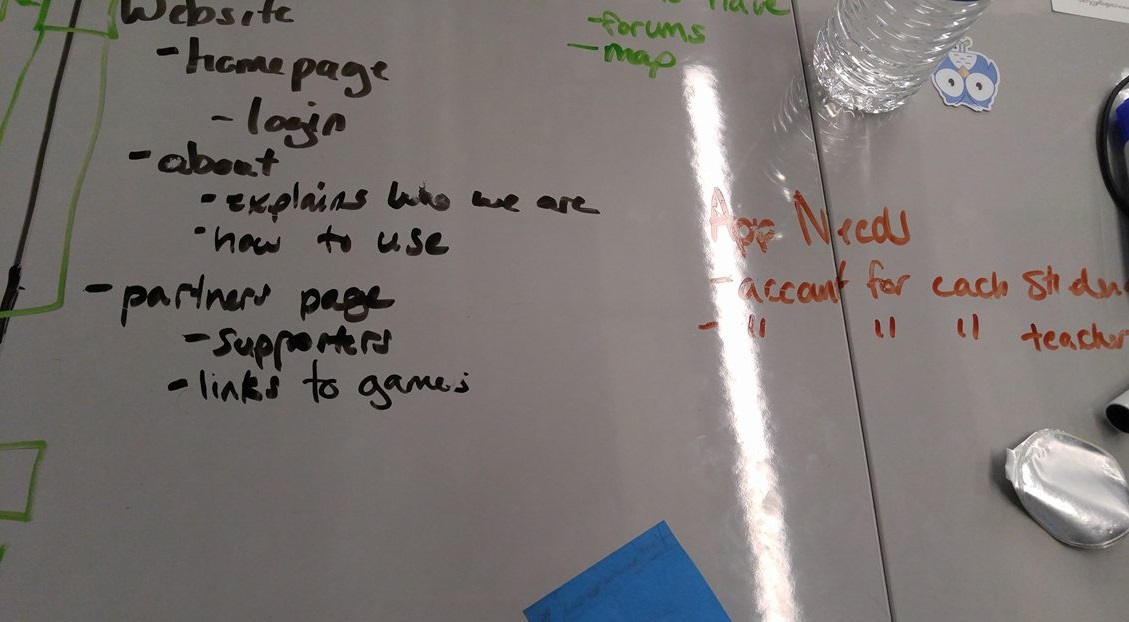 Website
- homepage
- login
- about
- explains who we are
- how to use
- partners page
- supporters
- links to games
have
- forums
- map
App Needs
- account for each
- " " " teacher